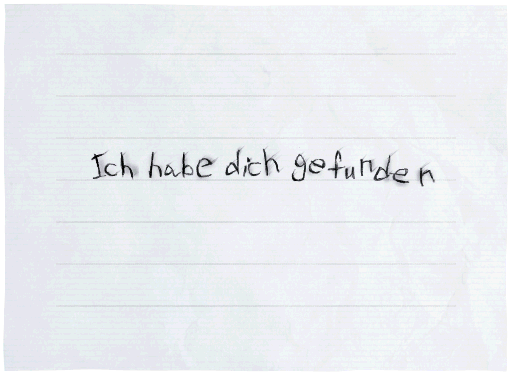 Ich habe dich gefunden